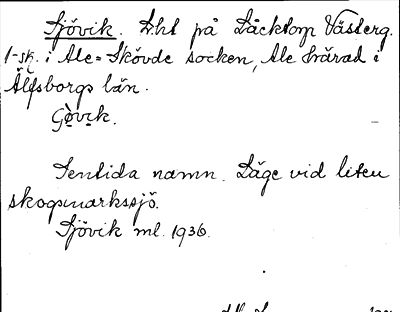 Sjövik. Lht på Läcktorp Västerg.
1-sk. i Ale-Skövde socken, Ale härad i
Älfsborgs län.
Sentida namn. Läge vid liten
skogsmarkssjö.
Sjövik ml. 1936.